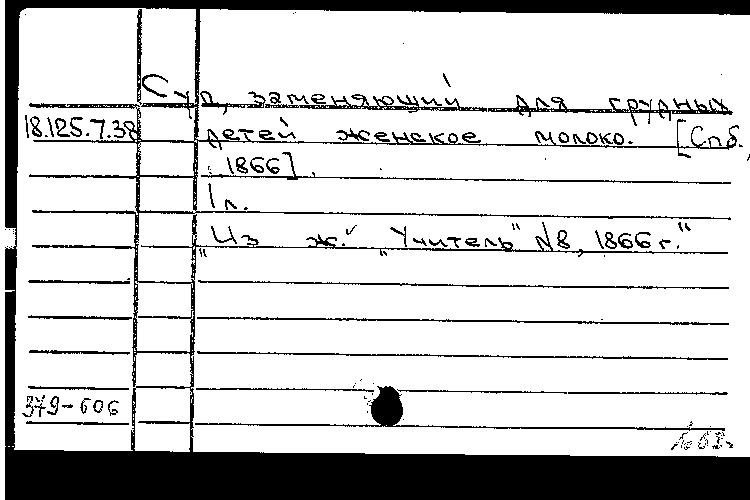 Суп, заменяющий для грудных
18.125.7.38 детей женское молоко. [Спб.,
1866].
1 л.
„Из ж." „Учитель" N8, 1866 г."
379-606